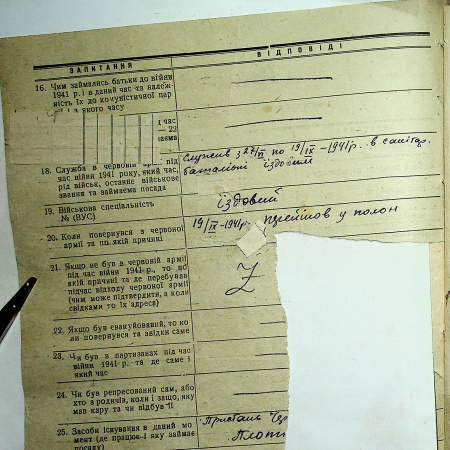 ЗАПИТАННЯ
ВІДПОВІДІ
16. Чим займались батьки до війни
1941 р. і в даний час та належ-
ність їх до комуністичної пар
з якого часу
час
— 22
аєма
18. Служба в червоній армії під
час війни 1941 року, який час,
рід військ, останнє військове
звання та займаєма посада
Служив з 27/VI по 19/IX -1941р. в саніт.
баталіоні їздовим
19. Військова спеціальність
№ (ВУС)
їздовий
20. Коли повернувся з червоної
армії та по якій причині
19/IX -1941р. перейшов у полон
21. Якщо не був в червоній армії
під час війни 1941 р., то по
якій причині та де перебував
підчас відходу червоної армії
(чим може підтвердити, а коли
свідками то їх адреса)
Z
22. Якщо був евакуйований, то ко
ли повернувся та звідки саме
23. Чи був в партизанах під час
війни 1941 р. та де саме і
який час
24. Чи був репресований сам, або
хто з родичів, коли і защо, яку
мав кару та чи відбув її
25. Засоби існування в даний мо
мент (де працює і яку займає
посаду)
Пристань